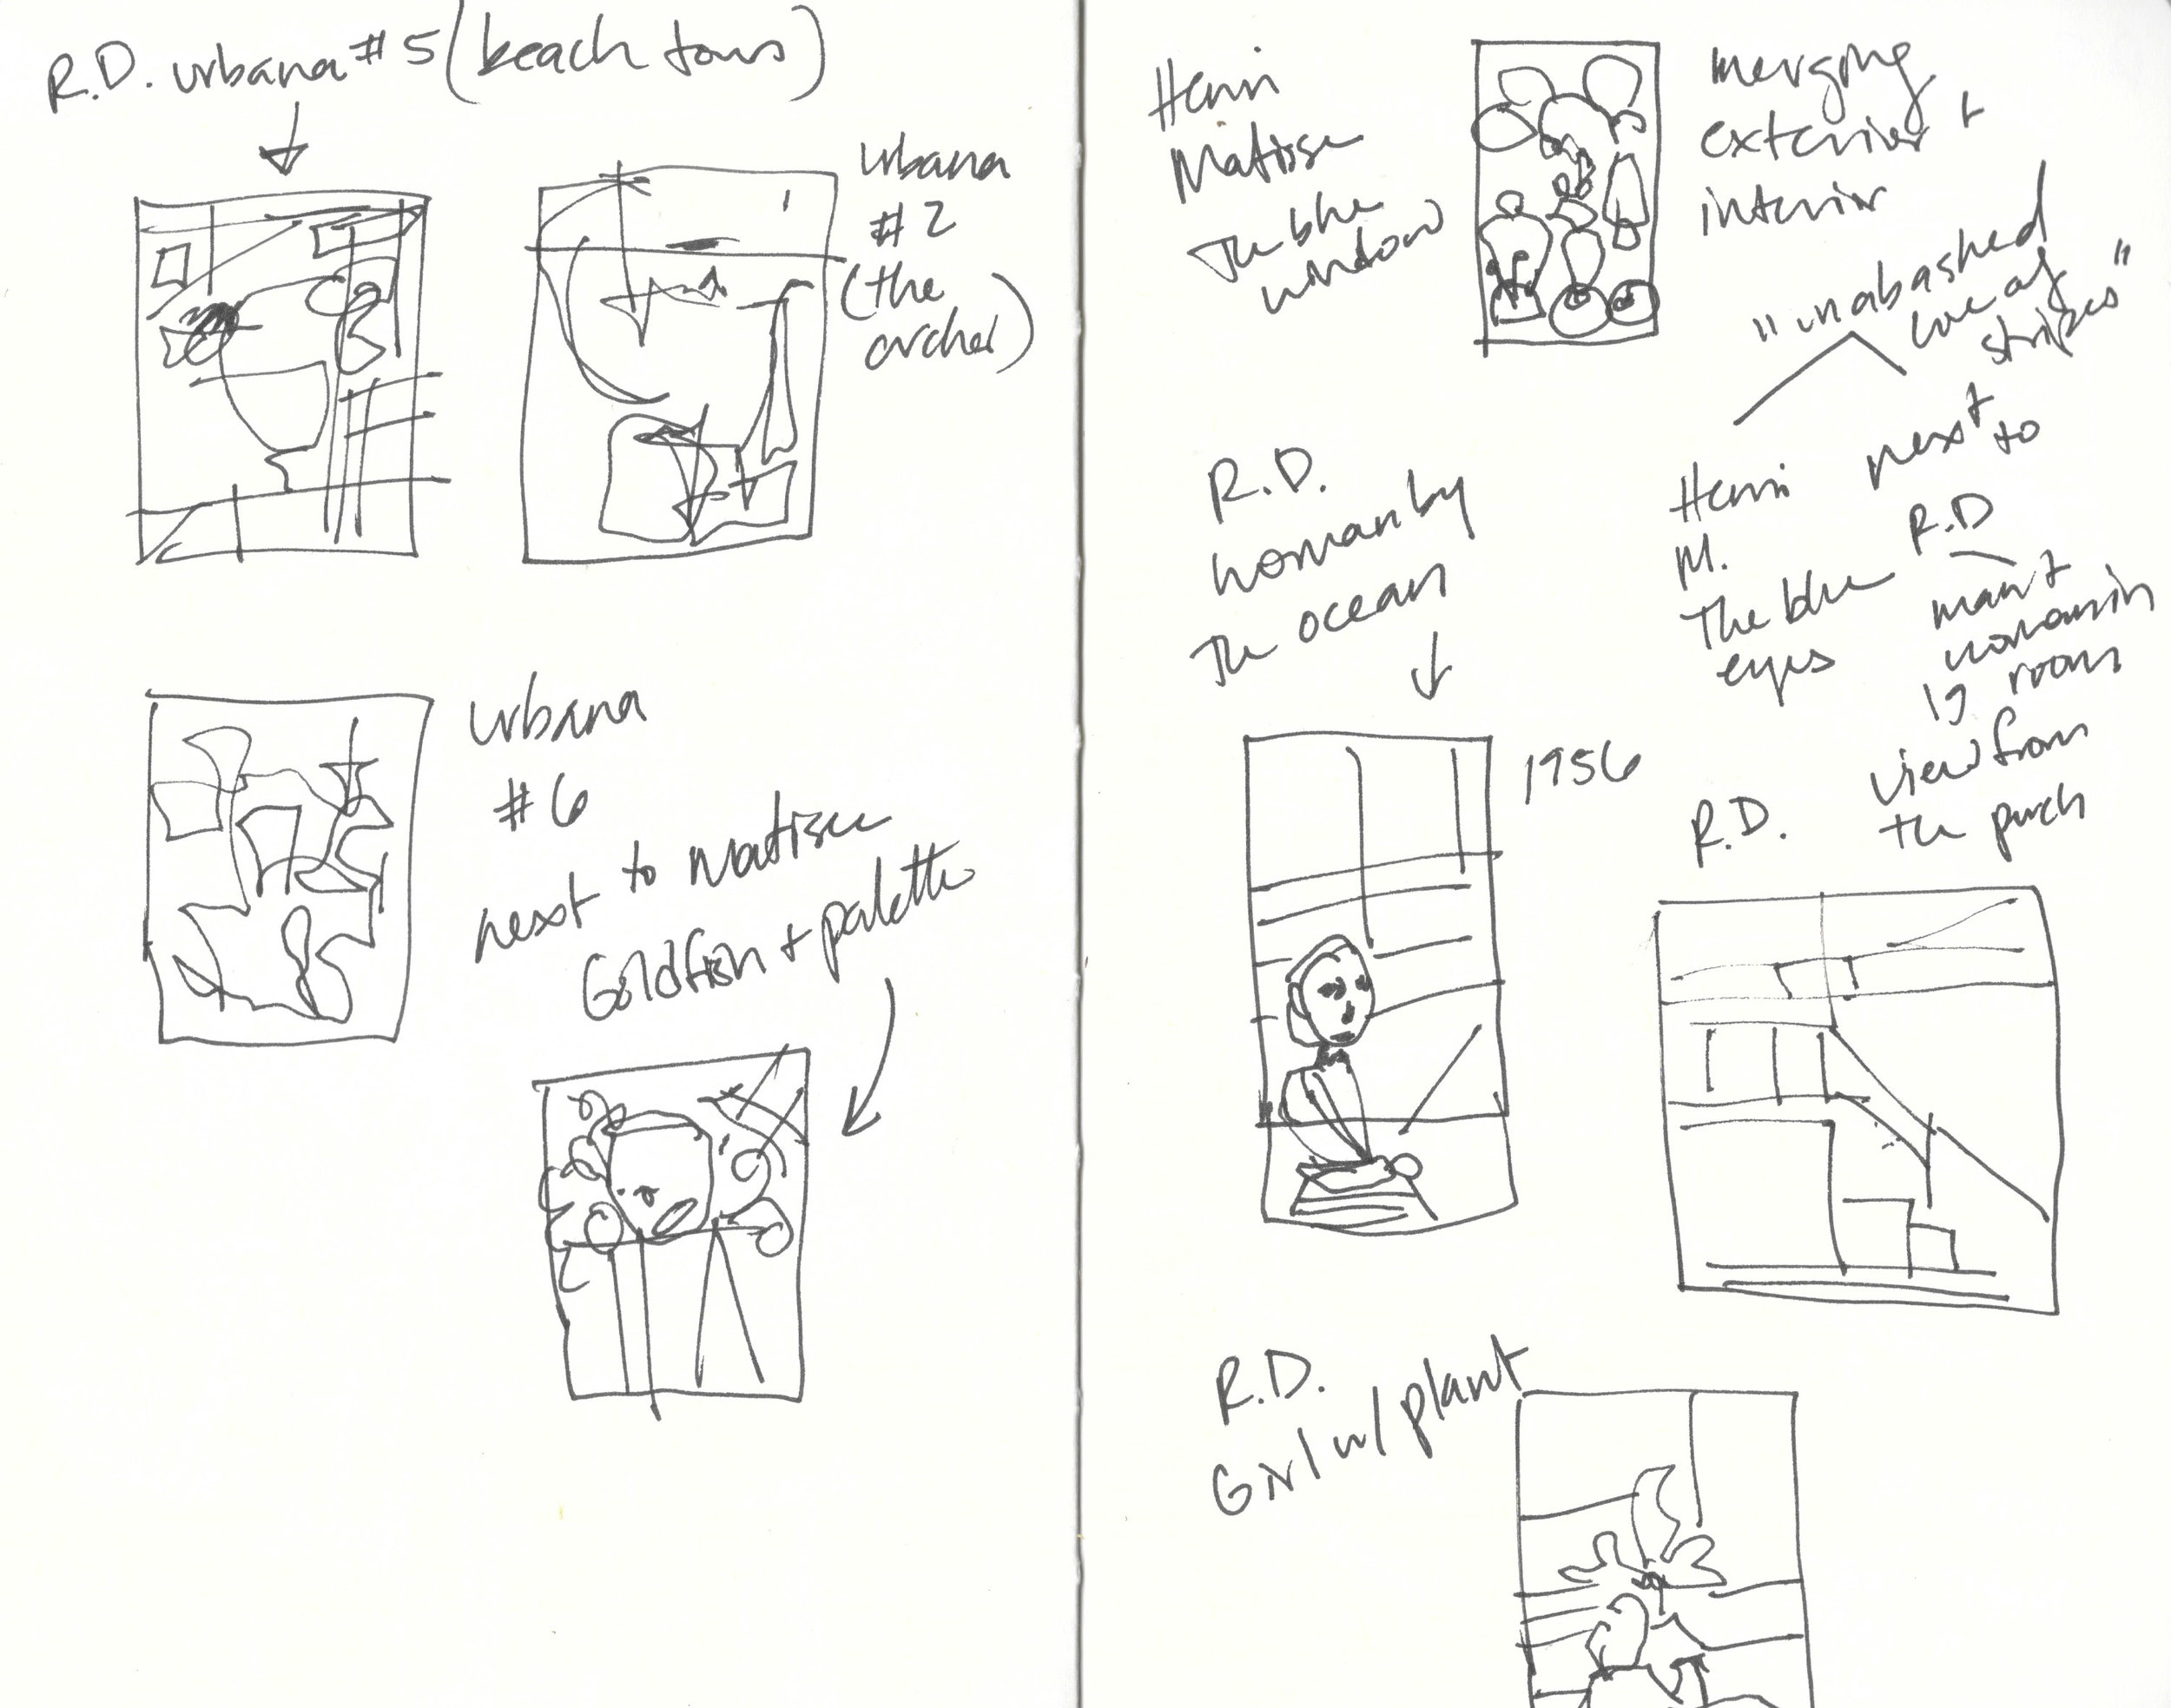 R.D. urbana #5 (beach town)
urbana
#2
(the
archer)
urbana
#6
next to Matisse
Goldfish + palette
Henri
Matisse
The blue
window
merging
exterior +
interior
"unabashed
love of
stripes"
R.D.
woman by
the ocean
1956
Henri
M.
The blue
eyes
next to
R.D
man +
woman in
room
R.D.
view from
the porch
R.D.
Girl w/ plant